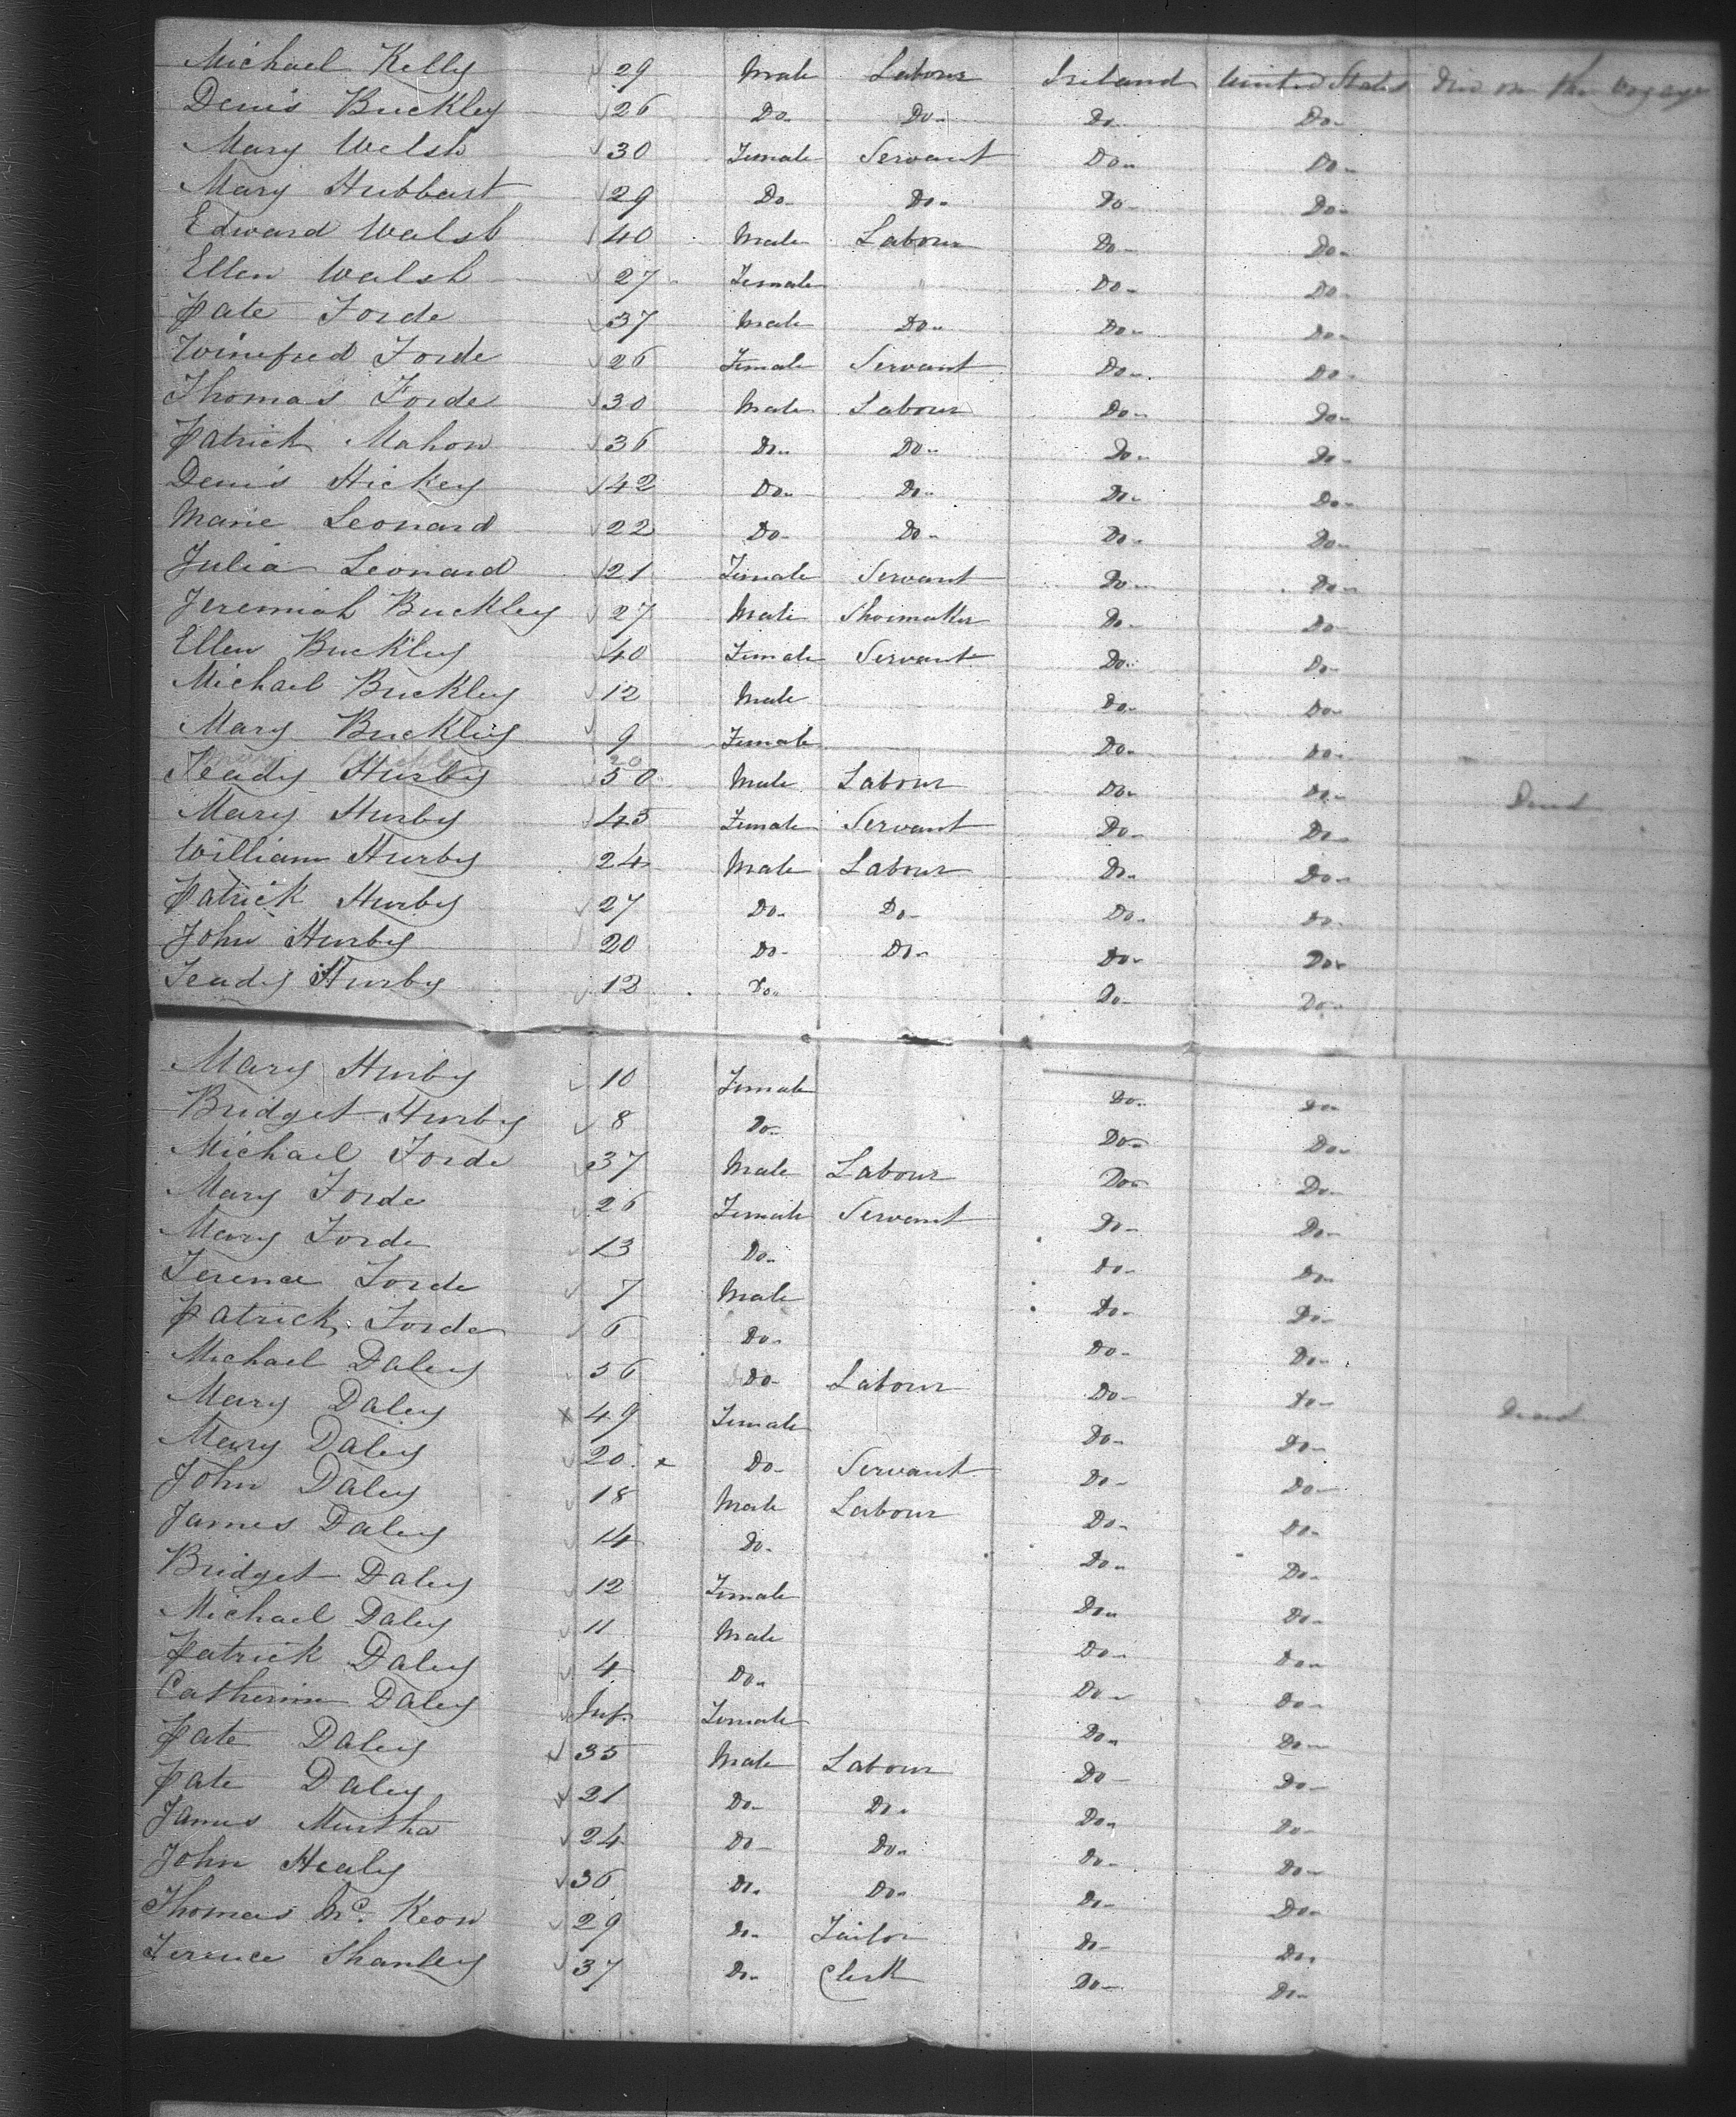 Michael Kelly 29 Male Labour Ireland United States Died on the Voyage
Denis Buckley 26 Do- Do- Do- Do-
Mary Welsh 30 Female Servant Do- Do-
Mary Hubbart 29 Do- Do- Do- Do-
Edward Walsh 40 Male Labour Do- Do-
Ellen Walsh 27 Female " Do- Do-
Pate Forde 37 Male Do- Do- Do-
Winefred Forde 26 Female Servant Do- Do-
Thomas Forde 30 Male Labour Do- Do-
Patrick Mahon 36 Do- Do- Do- Do-
Denis Hickey 42 Do- Do- Do- Do-
Marie Leonard 22 Do- Do- Do- Do-
Julia Leonard 21 Female Servant Do- Do-
Jeremiah Buckley 27 Male Shoemaker Do- Do-
Ellen Buckley 40 Female Servant Do- Do-
Michael Buckley 12 Male Do- Do-
Mary Buckley 9 Female Do- Do-
20
Teady Hurby 50 Male Labour Do- Do- Dead
Mary Hurby 45 Female Servant Do- Do-
William Hurby 24 Male Labour Do- Do-
Patrick Hurby 27 Do- Do- Do- Do-
John Hurby 20 Do- Do- Do- Do-
Teady Hurby 12 Do- Do- Do-
Mary Hurby 10 Female Do- Do-
Bridget Hurby 8 Do- Do- Do-
Michael Forde 37 Male Labour Do- Do-
Mary Forde 26 Female Servant Do- Do-
Mary Forde 13 Do- Do- Do-
Terence Forde 7 Male Do- Do-
Patrick Forde 6 Do- Do- Do-
Michael Daley 56 Do- Labour Do- Do-
Mary Daley x 49 Female Do- Do- Dead
Mary Daley 20 x Do- Servant Do- Do-
John Daley 18 Male Labour Do- Do-
James Daley 14 Do- Do- Do-
Bridget Daley 12 Female Do- Do-
Michael Daley 11 Male Do- Do-
Patrick Daley 4 Do- Do- Do-
Catherine Daley Inf. Female Do- Do-
Pate Daley 35 Male Labour Do- Do-
Pate Daley 21 Do- Do- Do- Do-
James Murtha 24 Do- Do- Do- Do-
John Healy 36 Do- Do- Do- Do-
Thomas Mc. Keon 29 Do- Tailor Do- Do-
Terence Shanley 37 Do- Clerk Do- Do-